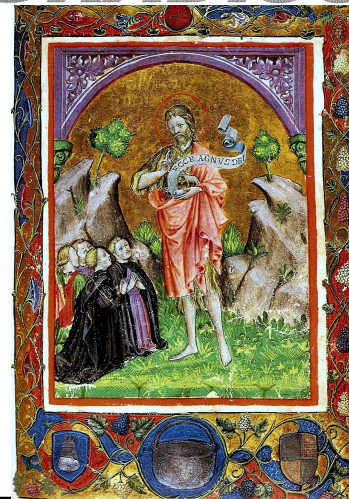 ECCE AGNVS DEI